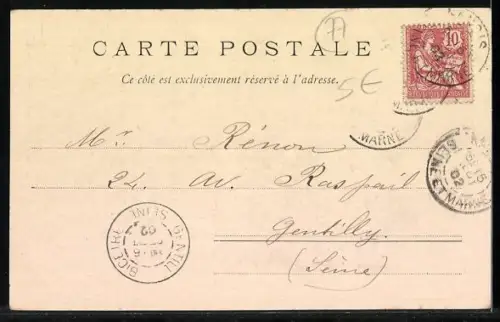 A
CARTE POSTALE
Ce côté est exclusivement réservé à l'adresse.
10
5E
MARNE
Mr. Rénon
24. Av. Raspail
Gentilly
(Seine)
SEINE ET MARNE
02
GENTILLY
BICETRE
SEINE
02